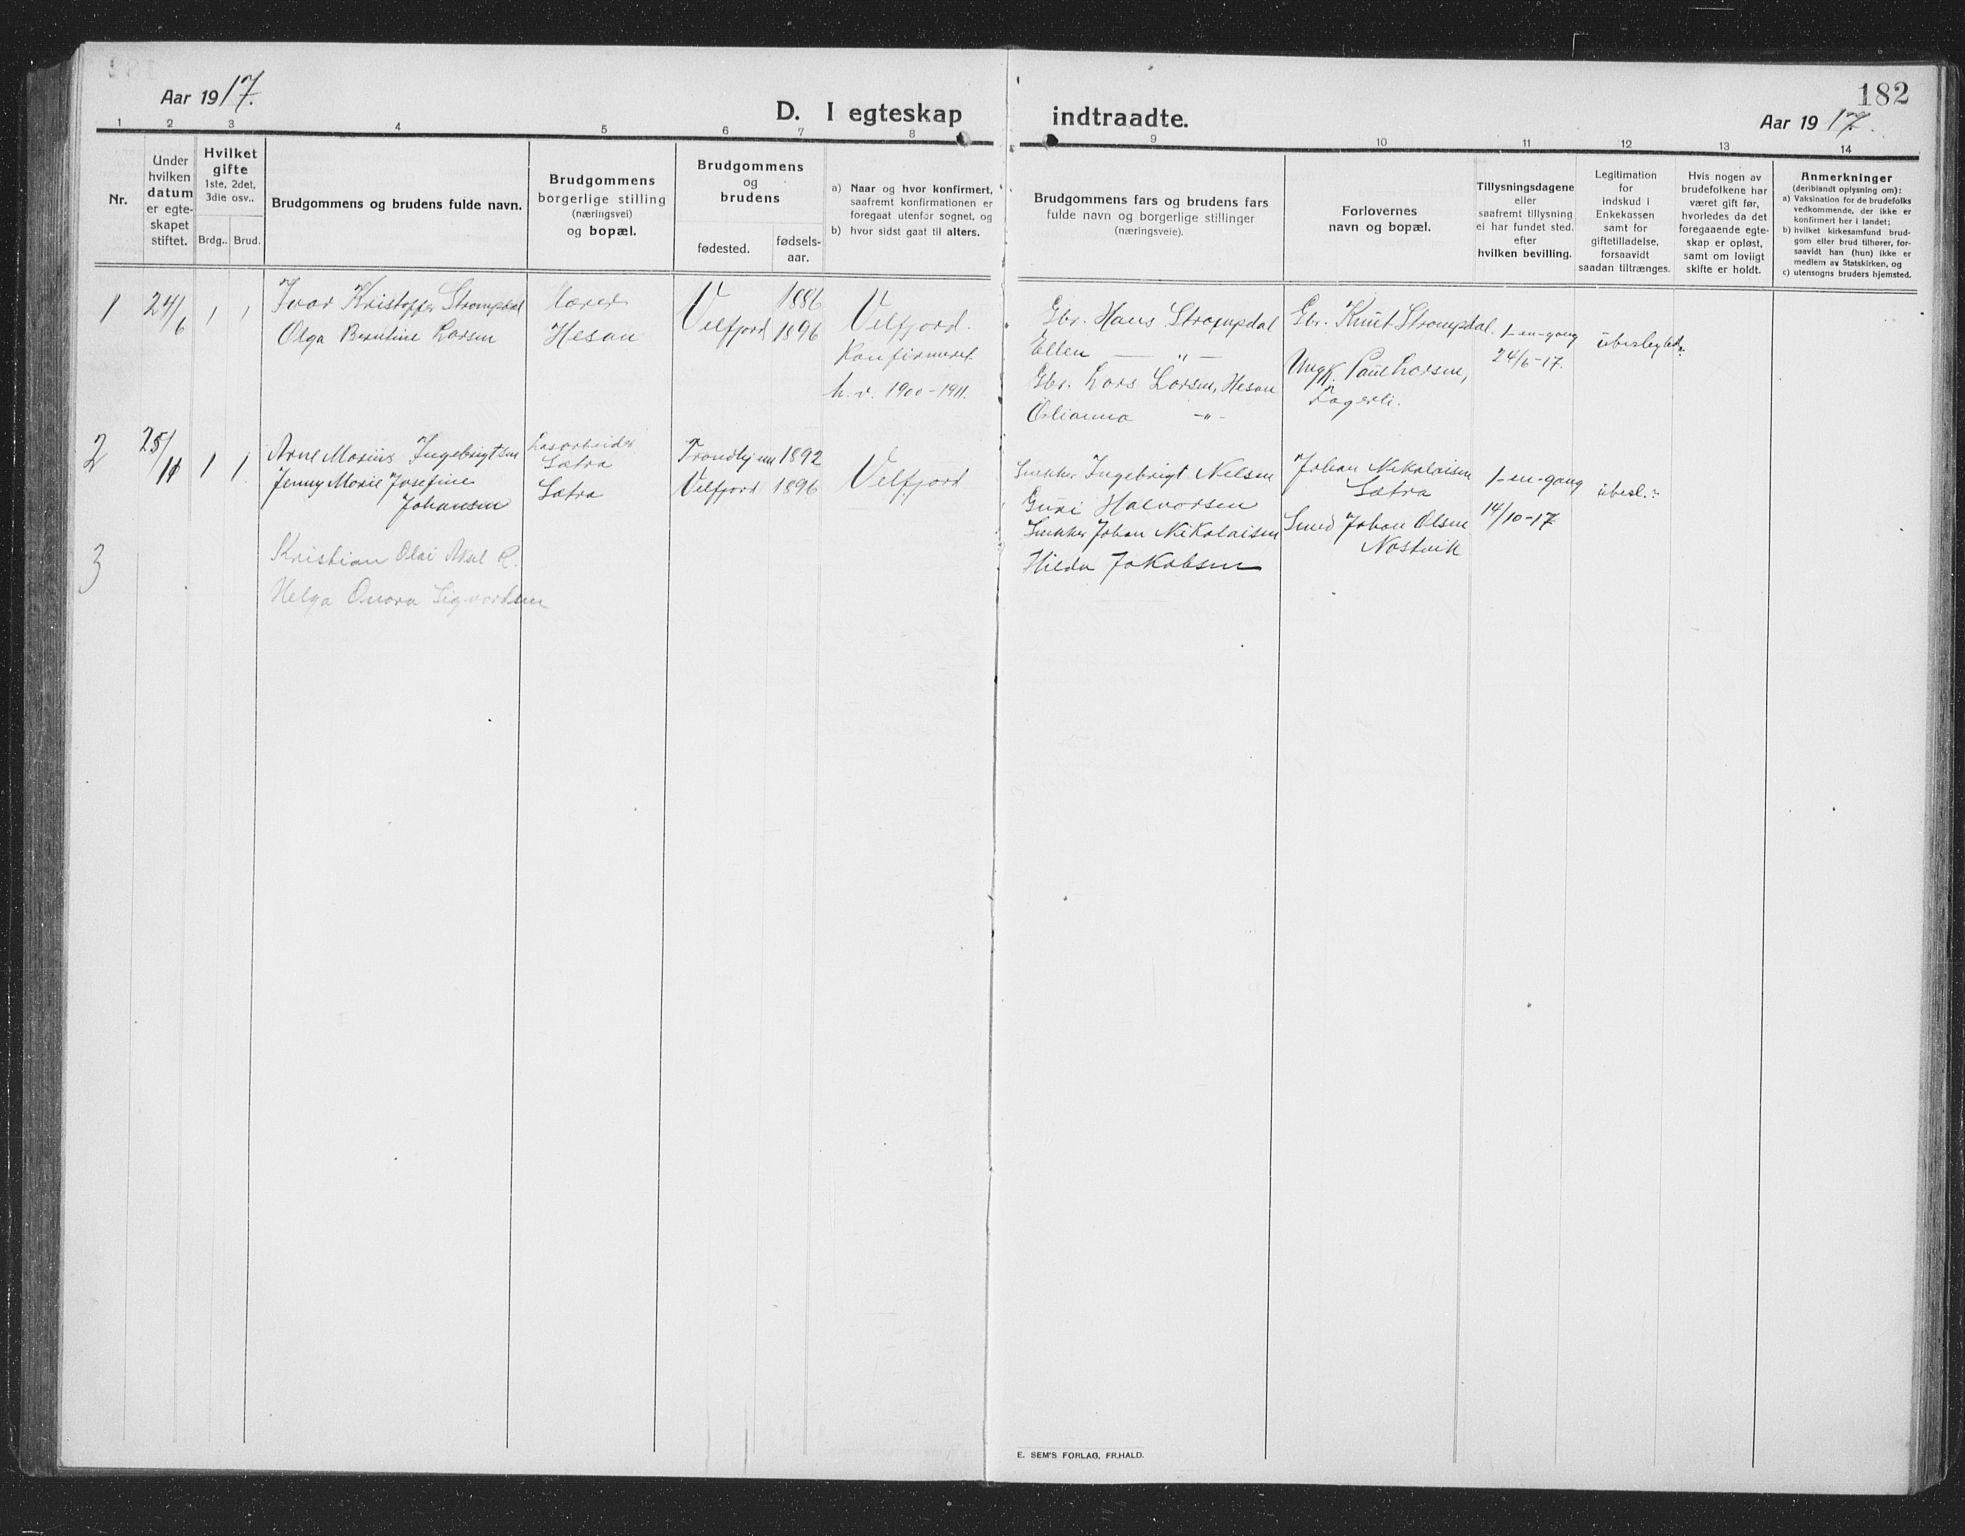 Aar 1917.
182
D. I egteskap indtraadte.
Aar 1917.
1 2 3 4 5 6 7 8 9 10 11 12 13 14
Nr.
Under
hvilken
datum
er egte-
skapet
stiftet.
Hvilket
gifte
1ste, 2det,
3die osv..
Brdg.. Brud.
Brudgommens og brudens fulde navn.
Brudgommens
borgerlige stilling
(næringsvei)
og bopæl.
Brudgommens
og
brudens
fødested.
fødsels-
aar.
a) Naar og hvor konfirmert,
saafremt konfirmationen er
foregaat utenfor sognet, og
b) hvor sidst gaat til alters.
Brudgommens fars og brudens fars
fulde navn og borgerlige stillinger
(næringsveie).
Forlovernes
navn og bopæl.
Tillysningsdagene
eller
saafremt tillysning
ei har fundet sted,
efter
hvilken bevilling.
Legitimation
for
indskud i
Enkekassen
samt for
giftetilladelse,
forsaavidt
saadan tiltrænges.
Hvis nogen av
brudefolkene har
været gift før,
hvorledes da det
foregaaende egte-
skap er opløst,
samt om lovligt
skifte er holdt.
Anmerkninger
(deriblandt oplysning om):
a) Vaksination for de brudefolks
vedkommende, der ikke er
konfirmert her i landet;
b) hvilket kirkesamfund brud-
gom eller brud tilhører, for-
saavidt han (hun) ikke er
medlem av Statskirken, og
c) utensogns bruders hjemsted.
1 24/6 1 1
Ivar Kristoffer Strompdal
Olga Berntine Larsen
Lærer
Hesan
Velfjord
1886
1896
Velfjord.
Konfirmeret
h. v. 1900-1911.
Gbr. Hans Strompdal
Ellen — " —
Gbr. Lars Larsen, Hesan
Olianna -"-
Gbr. Knut Strompdal.
Ungk. Paul Larsen,
Fagerli.
1-en-gang
24/6-17.
2 25/11 1 1.
Arne Marius Ingebrigtsen
Jenny Marie Josefine
Johansen
Løsarbeider
Sætra
Sætra
Trondhjem 1892
Velfjord 1896
Velfjord
Snekker Ingebrigt Nelsen
Guri Halvorsen
Snekker Johan Nikolaisen
Hilda Jakobsen
Johan Nikolaisen
Sætra
Smed Johan Olsen
Nøstvik
1-en-gang
14/10-17
ubesl.:
3
Kristian Olai Aksel R.
Helga Onora Sigvardsen
E. SEM'S FORLAG, FR.HALD.